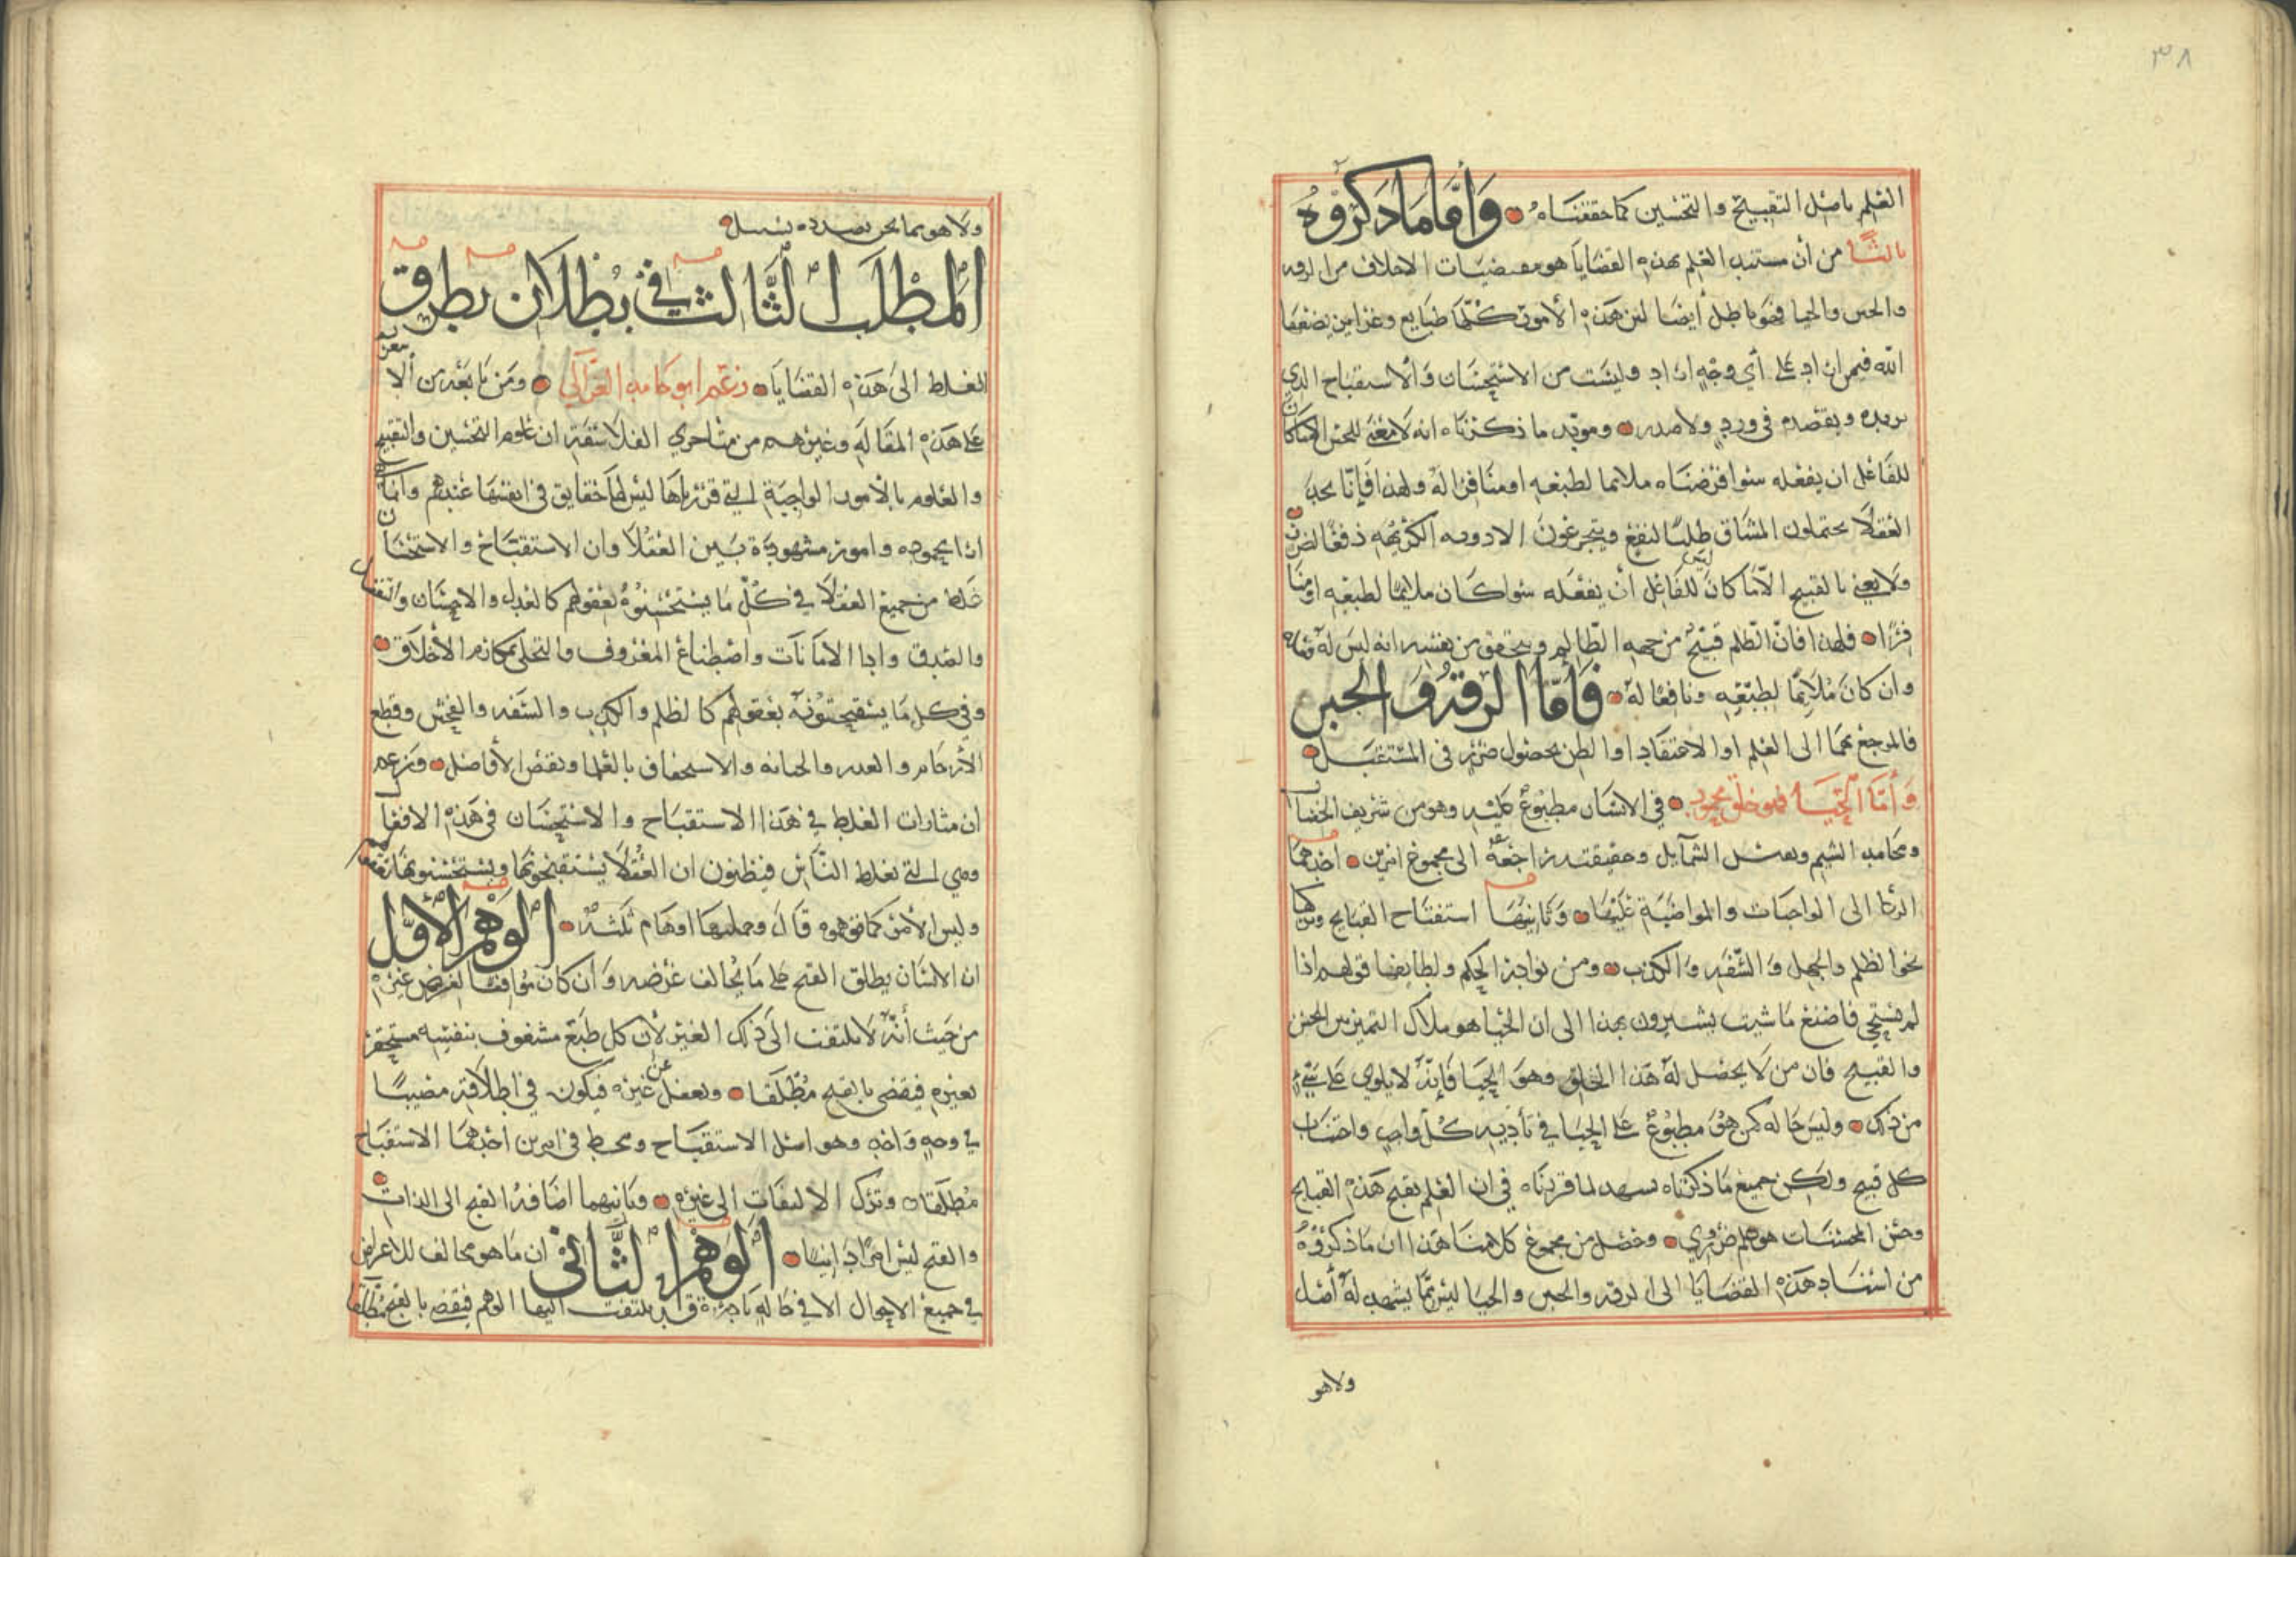 ٣٨
العلم باصل التقبيح والتحسين كما حققناه وَأمّا مَا ذكرُوه
ثالثًا من أن مستند العلم بهذه القضايا هو مقتضيات الاخلاف من الرقه
والجبن والحيا فهو باطل أيضا لان هذه الأمور كلّها طبايع وغرايز يضعها
الله فيمن اراد على أي وجه اراد وليست من الاستحسان وَالاستقباح الذي
نريده ونقصده في ورد ولا صدر ومويد ما ذكرناه انه لا معنى للحسن الا ما كان
للفاعل ان يفعله سوا فرضناه ملائما لطبعه او منافرا له ولهذا فإنّا نجد
العقلا يحتملون المشاق طلبًا لنفع ويتجرعون الادويه الكريهه دفعًا لضرر
ولا يعني بالقبيح الّا ما كان ليس للفاعل أن يفعله سوا كان ملايمًا لطبعه او منا
فرًا فلهذا فانّ الظلم قبيح من جهه الظالم ويتحقق من نفسه انه ليس له فعله
وان كان مُلايمًا لطبعه ونافعا له فَأمّا الرقة وَالجبن
فالمرجع بهما الى العلم اوالاعتقاد او الظن بحصول ضرر في المستقبل
وَأمّا الحيا فهو خلق محمود في الانسان مطبوع عليه وهو من شريف الخصال
ومحامد الشيم ونفيس الشمايل وحقيقته راجعة الى مجموع امرين احدهما
الركا الى الواجبات والمواضبة عليها وَثانيها استقباح القبايح وتركها
نحو الظلم والجهل وَالسّفه وَالكذب ومن نوادر الحكم ولطايفها قولهم اذا
لم تستحي فاصنع ما شيت يشيرون بهذا الى ان الحيا هو ملاك التميز بين الحسن
والقبيح فان من لا يحصل له هذا الخلق وهو الحيا فإنه لا يلوي على شيء
من ذلك وليس حاله كمن هو مطبوع على الحيا في تأديه كل واجب واجتناب
كل قبيح ولكن جميع ما ذكرناه يشهد لما قررناه في ان العلم بقبح هذه القبايح
وحسن المحسنات هو علم ضروري وحصل من مجموع كلامنا هذا ان ما ذكروه
من اسناد هذه القضايا الى الرقه والجبن والحيا ليس مما يشهد له أصل
ولا هو
ولا هو مما نحن بصدده بسبيل
المطلب الثالث في بُطلان بطرق
الغلط الى هذه القضايا زعم ابو حامد الغزالي ومن تابعه من ألا شعرية
على هذه المقاله وغيرهم من متاخري الفلاسفة ان علوم التحسين والتقبيح
والعلوم بالأمور الواجبة التي قررناها ليس لها حقايق في انفسها عندهم وانما
ارا محموده وامور مشهورة بين العقلا وان الاستقباح والاستحسان
غلط من جميع العقلا في كل ما يستحسنوه بعقولهم كالعدل والاحسان والتفضل
والصدق وادا الامانات واصطناع المعروف والتحلى بمكارم الأخلاق
وفي كل ما يستقبحونه بعقولهم كالظلم والكذب والسفه والفحش وقطع
الأرحام والغدر والخيانه والاستخفاف بالعلما ونقض الأفاضل وزعم
ان مثارات الغلط في هذا الاستقباح والاستحسان في هذه الافعال
وهي التي تغلط الناس فيظنون ان العُقلا يستقبحونها ويستحسنونها
وليس الأمر كما توهموه قال وجملتها اوهام ثلثه الوهم الأوّل
ان الانسان يطلق القبح على ما يخالف غرضه وَان كان موافقا لغرض غيره
من حيث أنه لا يلتفت الى ذلك الغير لأن كل طبع مشغوف بنفسه مستحقر
لغيره فيقضي بالقبح مُطلقا ويغفل عن غيره فيكون في اطلاقه مصيبًا
في وجه واحد وهو اصل الاستقباح ومخط في امرين احدهما الاستقباح
مُطلقا وترك الالتفات الى غيره وثانيهما اضافة القبح الى الذات
والقبح ليس امرًا ذاتيا الوهم الثاني ان ما هو مخالف للاغراض
في جميع الاحوال الا في حاله نادرة قد يلتفت اليها الوهم فيقضي بالقبح مطلقا